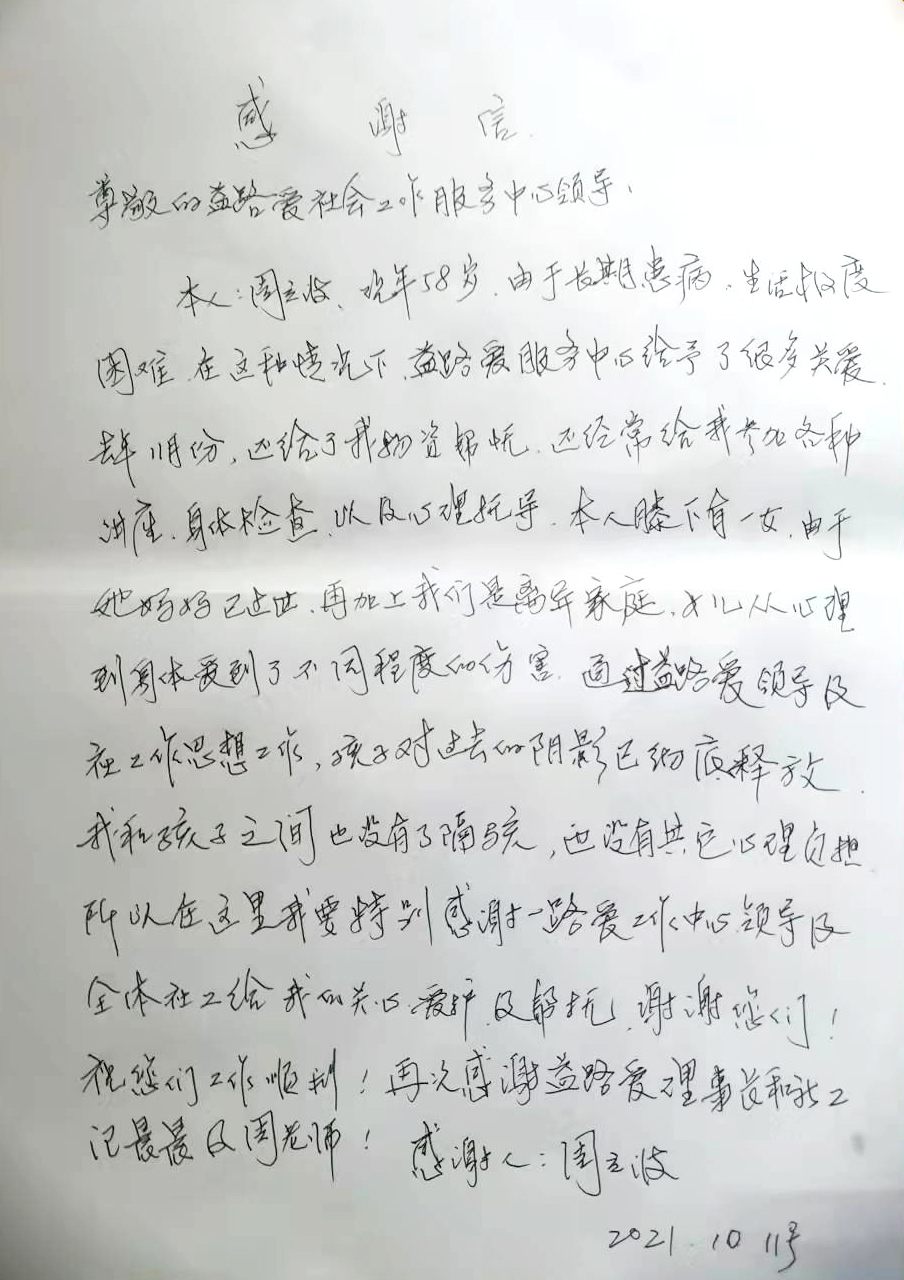 感谢信
尊敬的益路爱社会工作服务中心领导、
本人：周立波、现年58岁、由于长期患病、生活极度
困难、在这种情况下、益路爱服务中心给予了很多关爱、
去年11月份，还给了我物资帮忙、还经常给我参加各种
讲座、身体检查、以及心理托导、本人膝下有一女、由于
她妈妈已过世、再加上我们是离异家庭、女儿从心理
到身体受到了不同程度的伤害、通过益路爱领导及
社工作思想工作，孩子对过去的阴影已彻底释放、
我和孩子之间也没有了隔骇，也没有其它心理负担
所以在这里我要特别感谢一路爱工作中心领导及
全体社工给我的关心爱护、及帮抚、谢谢您们！
祝您们工作顺利！再次感谢益路爱理事长和社工
晨晨及周老师！感谢人：周立波
2021.10 11号